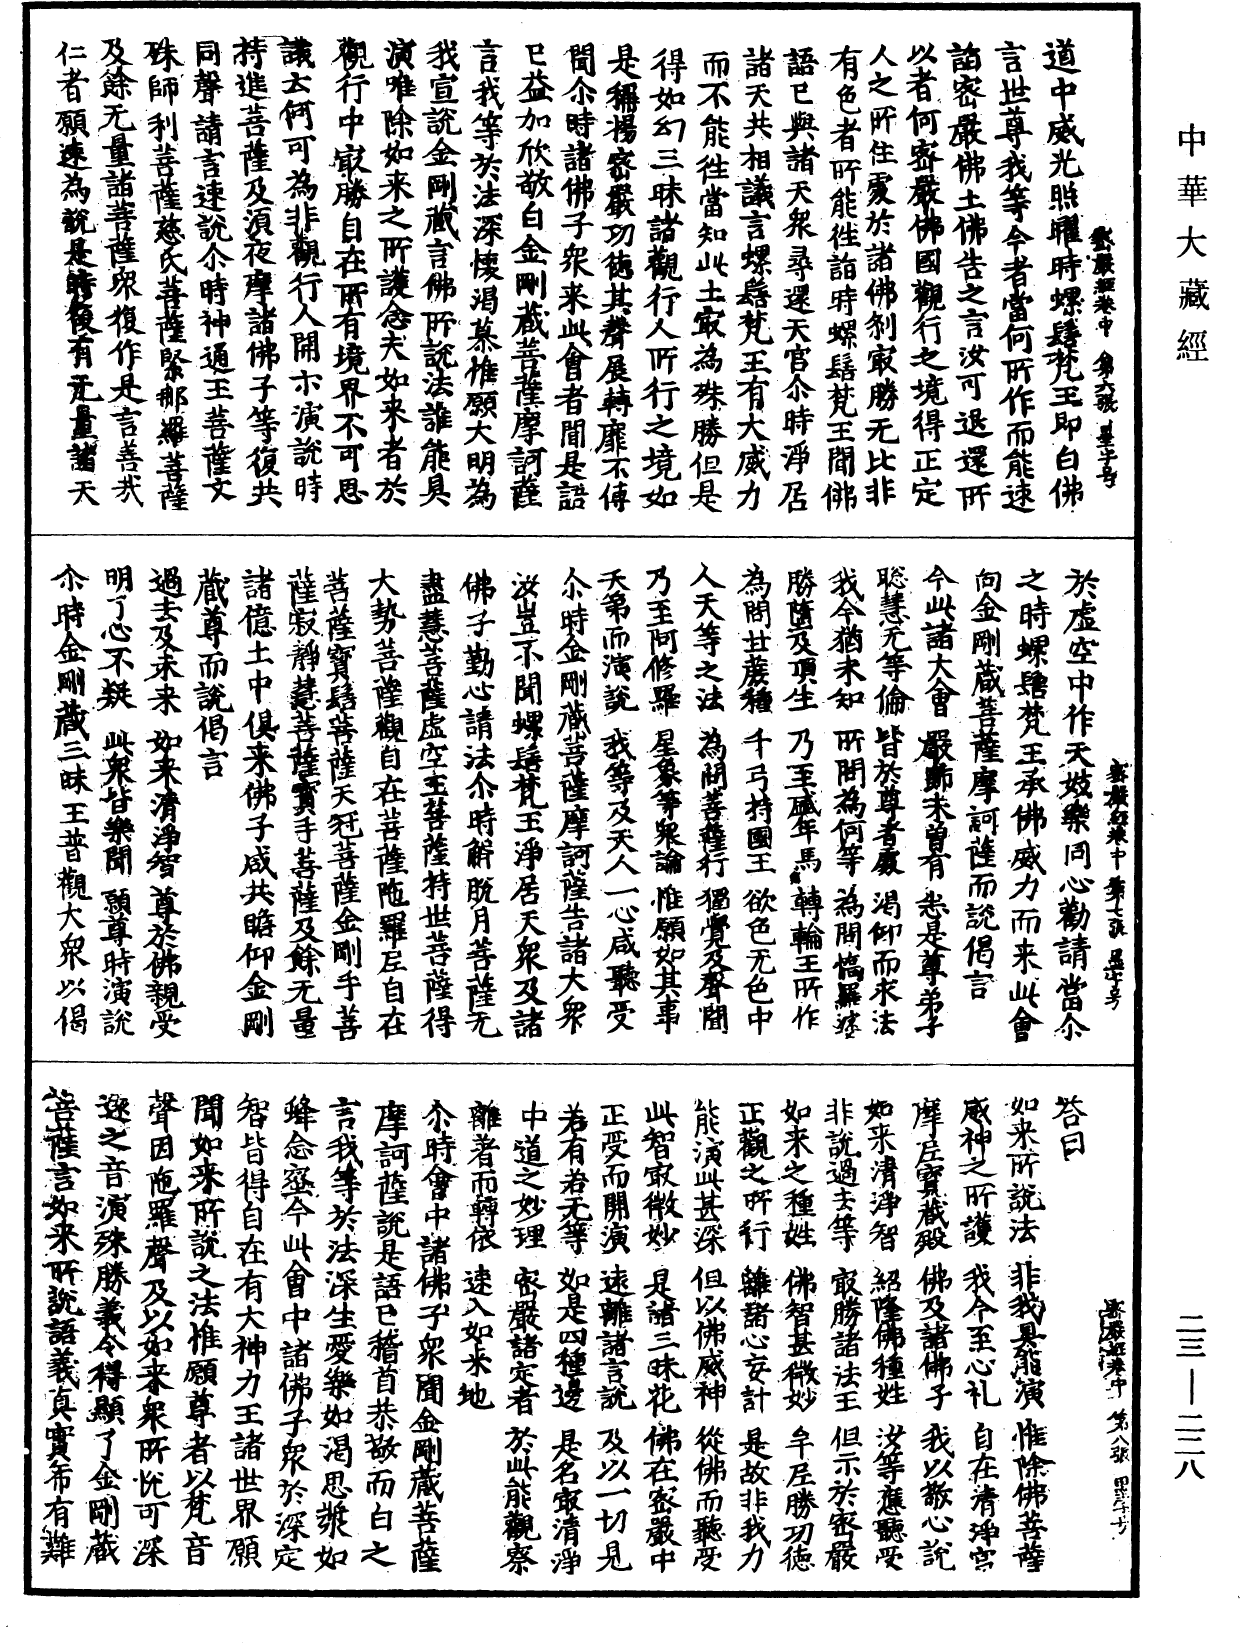 中華大藏經
二三—二二八
密嚴經卷中 第六張 星字号
道中威光照曜時螺髻梵王即白佛
言世尊我等今者當何所作而能速
詣密嚴佛土佛告之言汝可退還所
以者何密嚴佛國觀行之境得正定
人之所住處於諸佛剎㝡勝无比非
有色者所能往詣時螺髻梵王聞佛
語已與諸天衆尋還天宫尒時淨居
諸天共相議言螺髻梵王有大威力
而不能往當知此土㝡為殊勝但是
得如幻三昧諸觀行人所行之境如
是稱揚密嚴功德其聲展轉靡不傳
聞尒時諸佛子衆来此會者聞是語
已益加欣敬白金剛藏菩薩摩訶薩
言我等於法深懷渴慕惟願大明為
我宣說金剛藏言佛所說法誰能具
演唯除如来之所護念夫如来者於
觀行中㝡勝自在所有境界不可思
議云何可為非觀行人開示演說時
持進菩薩及湏夜摩諸佛子等復共
同聲請言速說尒時神通王菩薩文
殊師利菩薩慈氏菩薩緊那羅菩薩
及餘无量諸菩薩衆復作是言善㢤
仁者願速為說是時復有无量諸天
密嚴經卷中 第七張 星字号
於虛空中作天妓樂同心勸請當尒
之時螺髻梵王承佛威力而来此會
向金剛藏菩薩摩訶薩而說偈言
今此諸大會 嚴飾未曾有 悉是尊弟子
聡慧无等倫 皆於尊者處 渴仰而求法
我今猶未知 所問為何等 為問憍羅婆
勝墮及頂生 乃至盛年馬 轉輪王所作
為問甘蔗種 千弓持國王 欲色无色中
人天等之法 為問菩薩行 獨覺及聲聞
乃至阿修羅 星象等衆論 惟願如其事
天第而演說 我等及天人 一心咸聽受
尒時金剛藏菩薩摩訶薩告諸大衆
汝豈不聞螺髻梵王淨居天衆及諸
佛子勤心請法尒時解脫月菩薩无
盡慧菩薩虛空王菩薩持世菩薩得
大勢菩薩觀自在菩薩陁羅尼自在
菩薩寶髻菩薩天冠菩薩金剛手菩
薩寂靜慧菩薩寶手菩薩及餘无量
諸億土中俱来佛子咸共瞻仰金剛
藏尊而說偈言
過去及未来 如来清淨智 尊於佛親受
明了心不疑 此衆皆樂聞 願尊時演說
尒時金剛藏三昧王普觀大衆以偈
密嚴經卷中 第八張 星字号
荅曰
如来所說法 非我具能演 惟除佛菩薩
威神之所護 我今至心礼 自在清淨宫
摩尼寶藏殿 佛及諸佛子 我以敬心說
如来清淨智 紹隆佛種姓 汝等應聽受
非說過去等 㝡勝諸法王 但示於密嚴
如来之種姓 佛智甚微妙 牟尼勝功德
正觀之所行 離諸心妄計 是故非我力
能演此甚深 但以佛威神 從佛而聽受
此智㝡微妙 是諸三昧花 佛在密嚴中
正受而開演 遠離諸言說 及以一切見
若有若无等 如是四種邊 是名㝡清淨
中道之妙理 密嚴諸定者 於此能觀察
離著而轉依 速入如来地
尒時會中諸佛子衆聞金剛藏菩薩
摩訶薩說是語已稽首恭敬而白之
言我等於法深生愛樂如渴思漿如
蜂念蜜今此會中諸佛子衆於深定
智皆得自在有大神力王諸世界願
聞如来所說之法惟願尊者以梵音
聲因陁羅聲及以如来衆所忱可深
遠之音演殊勝義令得顯了金剛藏
菩薩言如来所說語義真實希有難